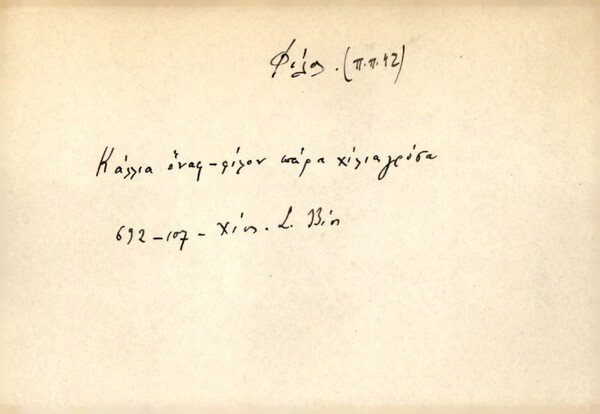 Φίλος. (π.π. 42)
Κάλλια ἕνας φίλον πάρα χίλια γρόσα
692 - 107 - Χίος. Σ. Βίος